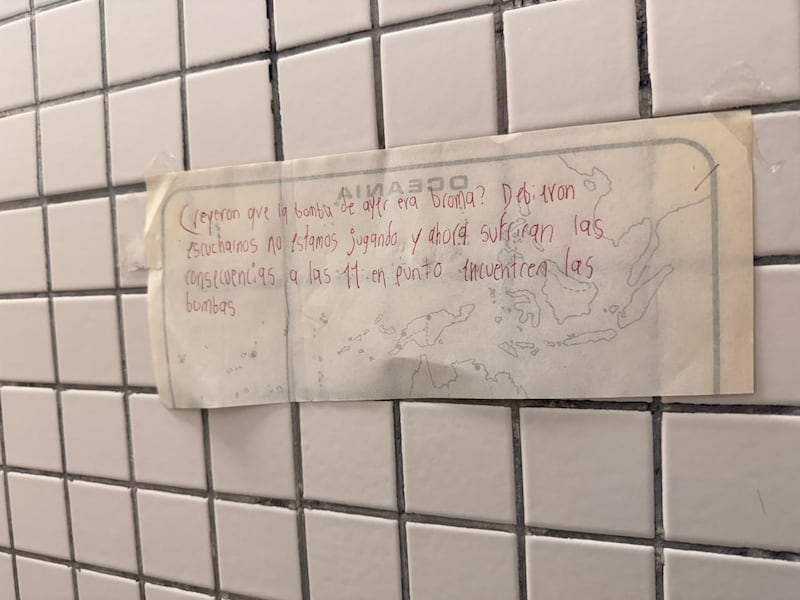 OCEANIA
Creyeron que la bomba de ayer era broma? Debieron
escucharnos no estamos jugando, y ahora sufriran las
consecuencias a las 11 en punto encuentren las
bombas